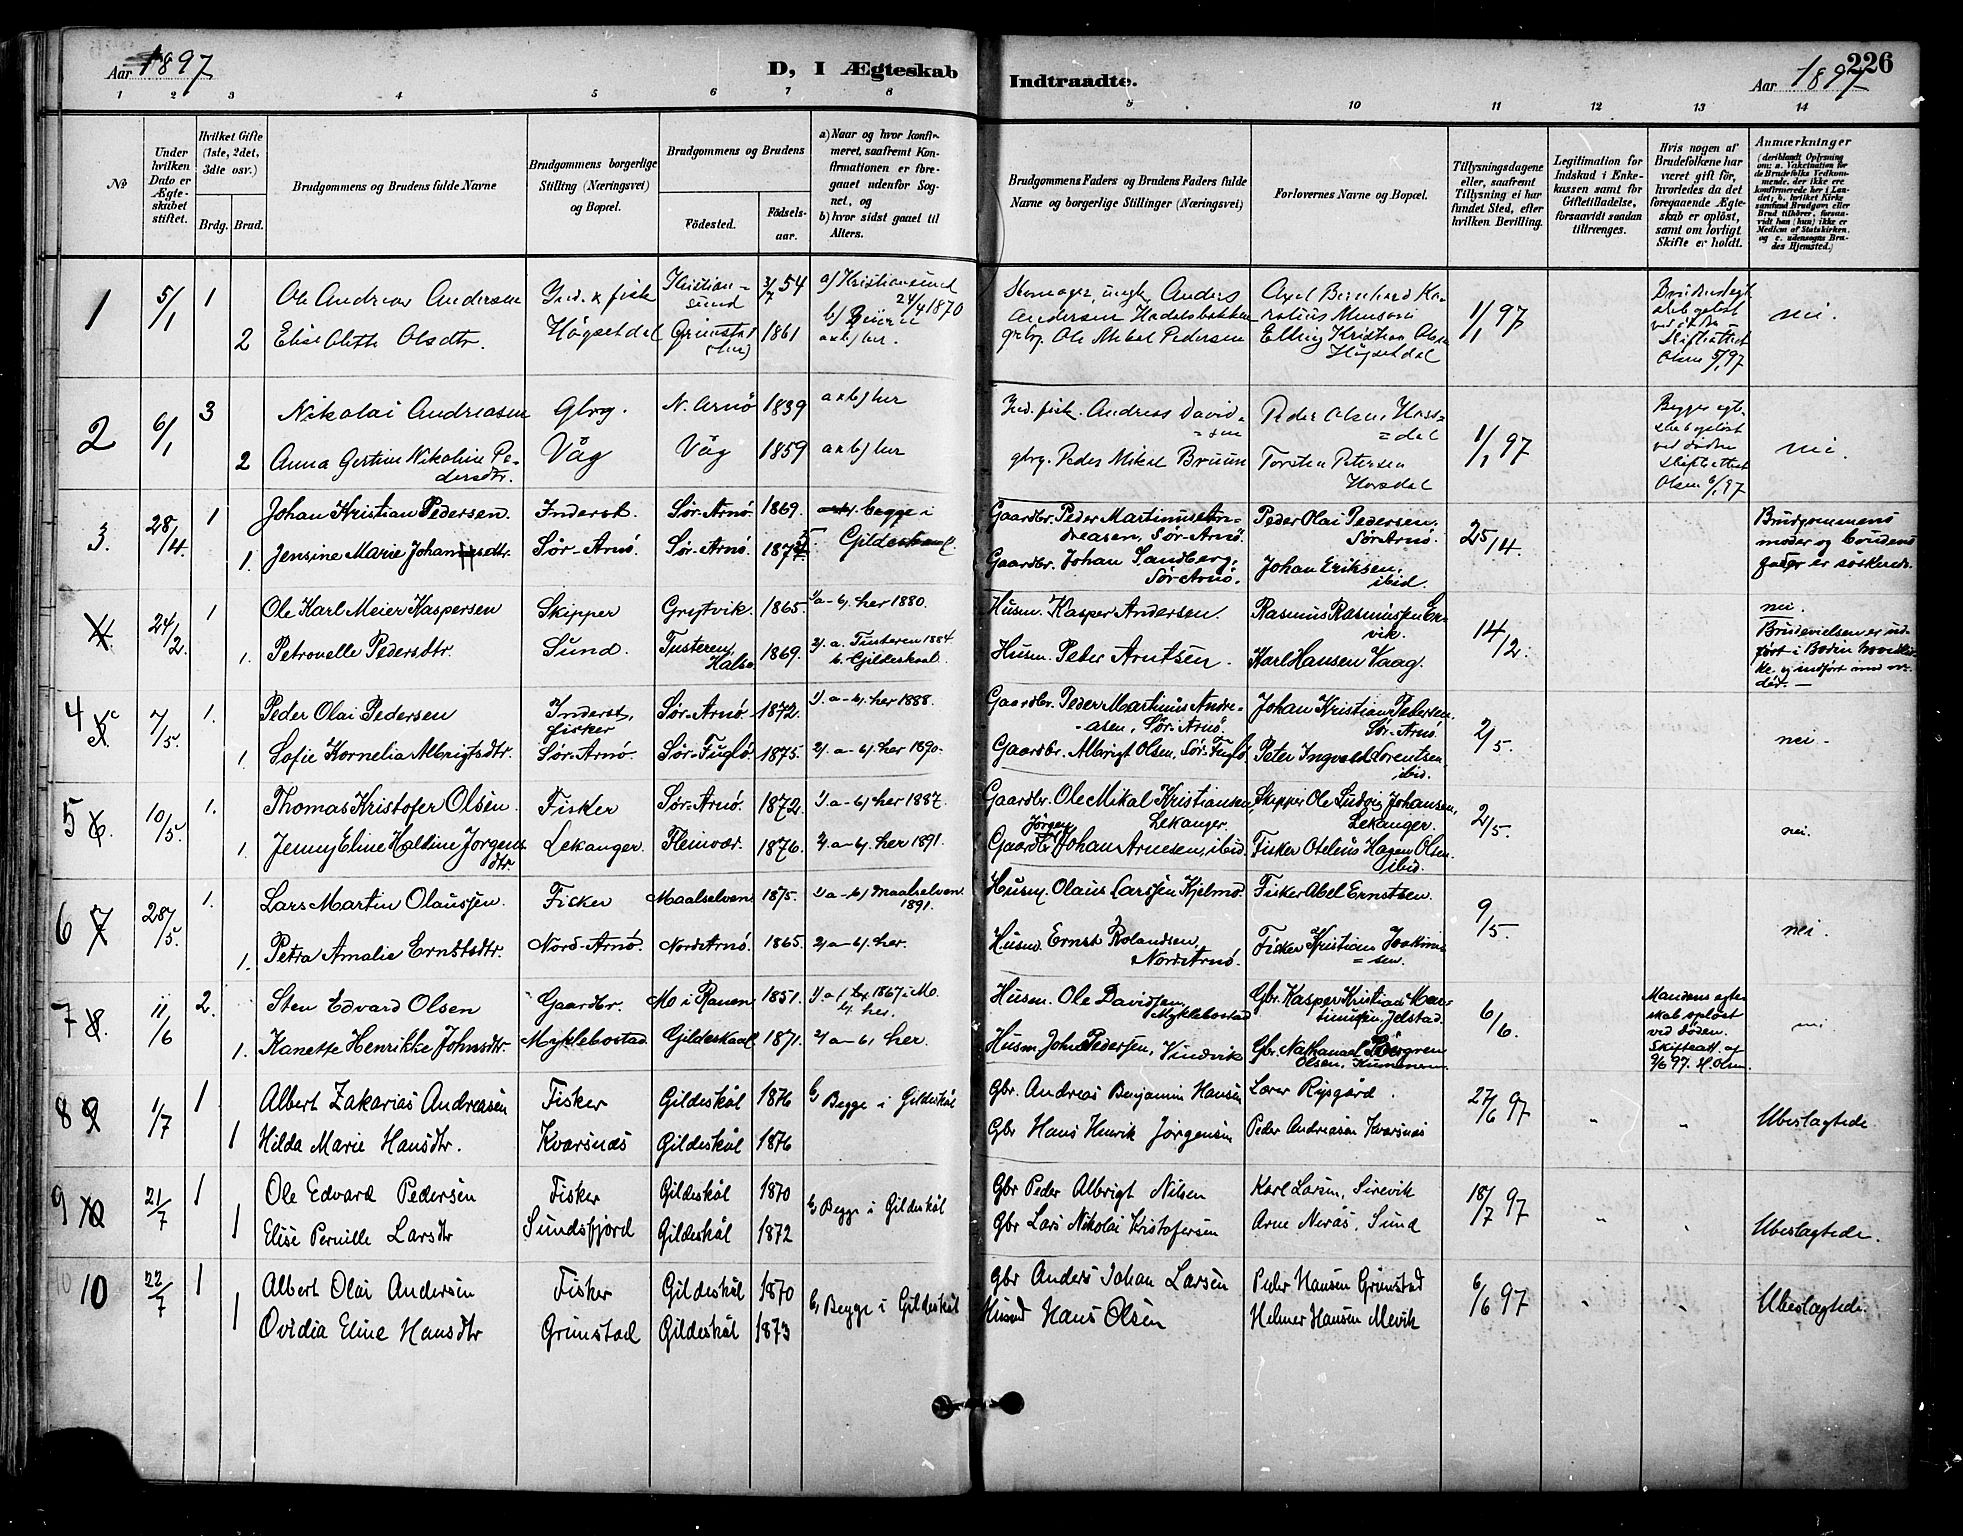 Aar 1897
D, I Ægteskab
Indtraadte.
Aar 1897
226
1 2 3 4 5 6 7 8 9 10 11 12 13 14
No
Under hvilken Dato er Ægteskabet stiftet.
Hvilket Gifte (1ste, 2det, 3die osv.)
Brdg. Brud.
Brudgommens og Brudens fulde Navne
Brudgommens borgerlige Stilling (Næringsvei) og Bopæl.
Brudgommens og Brudens
Födested.
Födselsaar.
a) Naar og hvor konfirmeret, saafremt Konfirmationen er foregaaet udenfor Sognet, og
b) hvor sidst gaaet til Alters.
Brudgommens Faders og Brudens Faders fulde Navne og borgerlige Stillinger (Næringsvei)
Forlovernes Navne og Bopæl.
Tillysningsdagene eller, saafremt Tillysning ei har fundet Sted, efter hvilken Bevilling.
Legitimation for Indskud i Enkekassen samt for Giftetilladelse, forsaavidt saadan tiltrænges.
Hvis nogen af Brudefolkene har været gift för, hvorledes da det foregaaende Ægteskab er oplöst, samt om lovligt Skifte er holdt.
Anmærkninger
(deriblandt Oplysning om: a. Vakcination for de Brudefolks Vedkommende, der ikke ere konfirmerede her i Landet; b. hvilket Kirkesamfund Brudgom eller Brud tilhörer, forsaavidt han (hun) ikke er Medlem af Statskirken, og c. udensogns Brudes Hjemsted.)
1 5/1 1 Ole Andreas Andersen Ind. & fisk Kristiansund 3/7 54 a) Kristiansund 24/4 1870 b) Beiern
Anders Andersen Hadelsbakken Axel Bernhard 1/1 97 nei.
2 Elise Olette Olsdtr. Högsetdal Grimstad (her) 1861 a & b) her.
grbg. Ole Mikal Pedersen Elling Kristian Olsen Högsetdal
Skifteattest Olsen 5/1 97
2 6/1 3 Nikolai Andreasen Gbrg. N. Arnö 1839 a & b) her
Ind. fisk. Andreas Davidsen Peder Olsen, Horsdal 1/1 97 nei.
2 Anna Gertine Nikoline Pedersdtr. Våg Våg 1859 a & b) her
gbrg. Peder Mikal Bruun Torsten Petersen Horsdal
Begges egteskab oplöst ved döden Skifteattest Olsen 6/1 97
3. 28/4 1 Johan Kristian Pedersen. Inderst. Sør-Arnö. 1869. begge i Gildeskaal.
Gaardbr. Peder Martinus Andreasen, Sør-Arnö. Peder Olai Pedersen, Sör-Arnö. 25/4.
1. Jensine Marie Johannsdtr. Sør-Arnö. Sør-Arnö. 1875
Gaardbr. Johan Sandberg, Sør-Arnö. Johan Eriksen, ibid.
Brudgommens moder og brudens fader er söskende.
4. 24/2. 1 Ole Karl Meier Kaspersen Skipper Grytvik. 1865. 1/a-b/. her 1880.
Husm. Kasper Andersen. Rasmus Rasmussen Envik. 14/2. nei.
1. Petrovelle Pedersdtr. Sund. Tusteren, Halsø 1869. 2/. a. Tusteren 1884 b. Gjildeskaal.
Husm. Peter Arntsen. Karl Hansen Vaag.
Brudevielsen er udført i Bodin
4 7/5. 1. Peder Olai Pedersen Inderst, fisker Sør-Arnö 1872. 1/. a-b/. her 1888.
Gaardbr. Peder Martinus Andreasen, Sør-Arnö. Johan Kristian Pedersen. Sør-Arnö. 2/5. nei.
1. Sofie Kornelia Albrigtsdtr. Sør-Arnö. Sør-Fuglö. 1875. 2/. a-b/. her 1890.
Gaardbr. Albrigt Olsen, Sør-Fuglö Peter Ingvald Lorentsen, ibid.
5 6. 10/5. 1. Thomas Kristofer Olsen. Fisker Sør-Arnö. 1872. 1/. a-b/. her 1887.
Gaardbr. Ole Mikal Kristiansen, Lekanger. Skipper Ole Ludvig Johansen, Lekanger. 2/5. nei.
1. Jenny Eline Haldine Jørgensdtr. Lekanger. Fleinvær. 1876. 2/. a-b/. her 1891.
Gaardbr. Jörgen Johan Arnesen, ibid. Fisker Otelius Hagen Olsen ibid.
6 7 28/5. 1. Lars Martin Olaussen. Fisker Maalselven 1875. 1/a-b/ Maalselven 1891.
Husm. Olaus Larssen Kjelmo. Fisker Abel Ernstsen. 9/5. nei.
1. Petra Amalie Ernstsdtr. Nord-Arnö. Nord-Arnö. 1865. 2/a-b/. her.
Husm. Ernst Rolandsen Nord-Arnö. Fisker Kristian Joakimsen.
7 8. 11/6 2. Sten Edvard Olsen Gaardbr. Mo i Ranen 1851. 1/a 1867 i Mo. b/. her.
Husm. Ole Davidsen, Myklebostad Gbr. Kasper Kristian Martinussen, Jelstad. 6/6. nei
1. Kanette Henrikke Johnsdtr. Myklebostad. Gjildeskaal 1871. 2/ a-b/ her.
Husm. John Pedersen, Vindvik Gbr. Nathanael Olsen
Mandens egteskab oplöst ved døden. Skifteatt. af 9/6 97. H. Olsen.
8 9 1/7 1 Albert Zakarias Andreasen Fisker Gildeskål 1876 b/ Begge i Gildeskål
Gbr. Andreas Benjamin Hansen Lærer Rysgård. 27/6 97 " " Ubeslagtede
1 Hilda Marie Hansdtr. Kvarsnæs Gildeskål 1876
Gbr Hans Henrik Jörgensen Peder Andreasen Kvarsnæs
9 10 21/7 1 Ole Edvard Pedersen Fisker Gildeskål 1870 b/ Begge i Gildeskål
Gbr Peder Albrigt Nilsen Karl Larsen, Sirevik 18/7 97 " " Ubeslagtede.
1 Elise Pernille Larsdtr Sundsfjord Gildeskål 1872
Gbr Lars Nikolai Kristofersen Arne Nerås, Sund
10 22/7 1 Albert Olai Andersen Fisker Gildeskål 1870 b/ Begge i Gildeskål
Gbr Anders Johan Larsen Peder Hansen Grimstad 6/6 97 " " Ubeslagtede.
1 Ovidia Eline Hansdtr Grimstad Gildeskål 1873
Husmd Hans Olsen Helmer Hansen Mevik